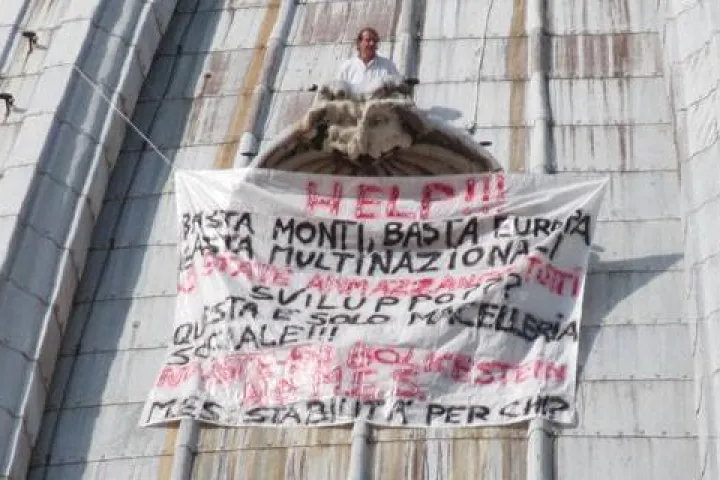 HELP!!!
BASTA MONTI, BASTA EUROPA
BASTA MULTINAZIONALI
CI STATE AMMAZZANDO TUTTI
SVILUPPO???
QUESTA È SOLO MACELLERIA
SOCIALE!!!
NO BOLKESTEIN
NO M.E.S.
M.E.S. STABILITÀ PER CHI?